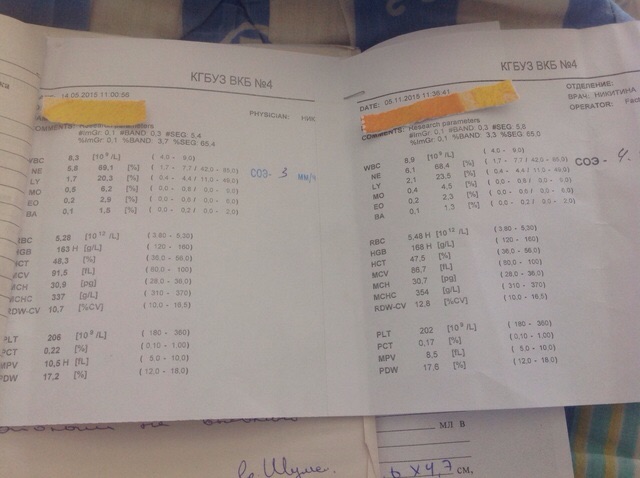 КГБУЗ ВКБ №4
14.05.2015 11:00:56
PHYSICIAN:
COMMENTS: Research parameters
#ImGr: 0,1 #BAND: 0,3 #SEG: 5,4
%ImGr: 0,1 %BAND: 3,7 %SEG: 65,4
WBC 8,3 [10^9 /L] ( 4.0 - 9.0)
NE 5,8 69,1 [%] ( 1,7 - 7,7 / 42,0 - 85,0)
LY 1,7 20,3 [%] ( 0,4 - 4,4 / 11,0 - 49,0)
MO 0,5 6,2 [%]
EO 0,2 2,9 [%]
BA 0,1 1,5 [%]
СОЭ- 3 мм/ч
RBC 5,28 [10^12 /L] ( 3,80 - 5,30)
HGB 163 H [g/L] ( 120 - 160)
HCT 48,3 [%] ( 36,0 - 56,0)
MCV 91,5 [fL] ( 80,0 - 100)
MCH 30,9 [pg] ( 28,0 - 36,0)
MCHC 337 [g/L] ( 310 - 370)
RDW-CV 10,7 [%CV] ( 10,0 - 16,5)
PLT 206 [10^9 /L] ( 180 - 360)
PCT 0,22 [%] ( 0,10 - 1,00)
MPV 10,5 H [fL] ( 5,0 - 10,0)
PDW 17,2 [%] ( 12,0 - 18,0)
КГБУЗ ВКБ №4
DATE: 05.11.2015 11:36:41
ОТДЕЛЕНИЕ:
ВРАЧ: НИКИТИНА
OPERATOR:
COMMENTS: Research parameters
#ImGr: 0,1 #BAND: 0,3 #SEG: 5,8
%ImGr: 0,1 %BAND: 3,3 %SEG: 65,0
WBC 8,9 [10^9 /L] ( 4.0 - 9.0)
NE 6,1 68,4 [%] ( 1,7 - 7,7 / 42,0 - 85,0)
LY 2,1 23,5 [%] ( 0,4 - 4,4 / 11,0 - 49,0)
MO 0,4 4,5 [%]
EO 0,2 2,3 [%]
BA 0,1 1,3 [%]
СОЭ- 4.
RBC 5,48 H [10^12 /L] ( 3,80 - 5,30)
HGB 168 H [g/L] ( 120 - 160)
HCT 47,5 [%] ( 36,0 - 56,0)
MCV 86,7 [fL] ( 80,0 - 100)
MCH 30,7 [pg] ( 28,0 - 36,0)
MCHC 354 [g/L] ( 310 - 370)
RDW-CV 12,8 [%CV] ( 10,0 - 16,5)
PLT 202 [10^9 /L] ( 180 - 360)
PCT 0,17 [%] ( 0,10 - 1,00)
MPV 8,5 [fL] ( 5,0 - 10,0)
PDW 17,6 [%] ( 12,0 - 18,0)
мл в
х4,7 см,